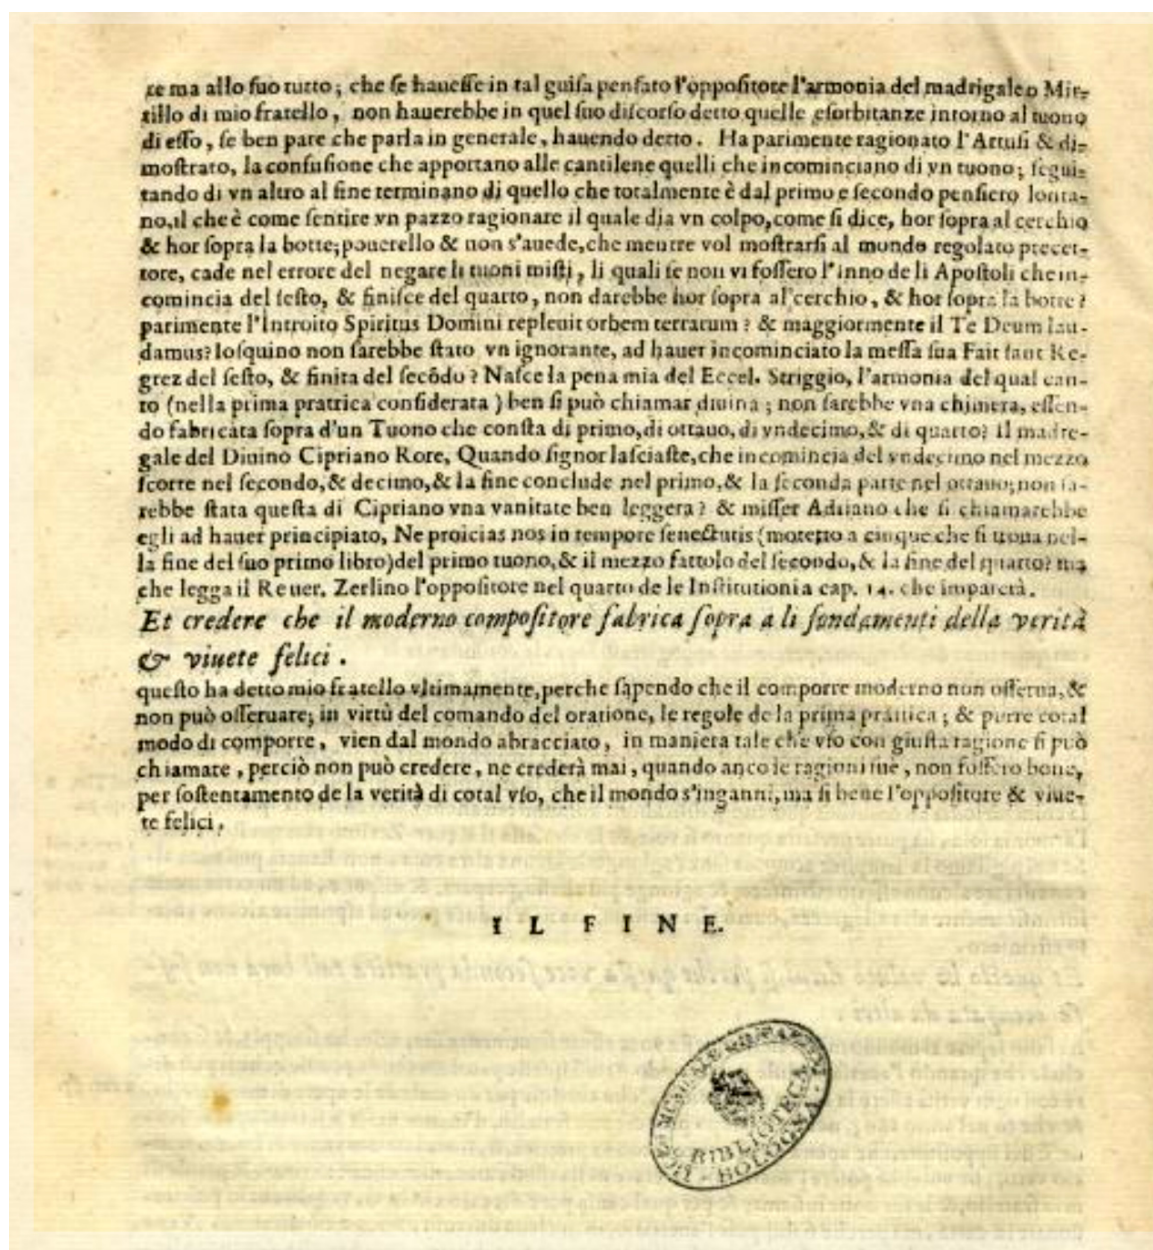 te ma allo suo tutto; che se hauesse in tal guisa pensato l'oppositore l'armonia del madrigale o Mir-
tillo di mio fratello, non hauerebbe in quel suo discorso detto quelle esorbitanze intorno al tuono
di esso, se ben pare che parla in generale, hauendo detto. Ha parimente ragionato l'Artusi & di-
mostrato, la confusione che apportano alle cantilene quelli che incominciano di vn tuono; segui-
tando di vn altro al fine terminano di quello che totalmente è dal primo e secondo pensiero lonta-
no, il che è come sentire vn pazzo ragionare il quale dia vn colpo, come si dice, hor sopra al cerchio
& hor sopra la botte; pouerello & non s'auede, che mentre vol mostrarsi al mondo regolato precet-
tore, cade nel errore del negare li tuoni misti, li quali se non vi fossero l'Inno de li Apostoli che in-
comincia del sesto, & finisce del quarto, non darebbe hor sopra al cerchio, & hor sopra la botte?
parimente l'Introito Spiritus Domini repleuit orbem terrarum? & maggiormente il Te Deum lau-
damus? Iosquino non sarebbe stato vn ignorante, ad hauer incominciato la messa sua Fait sant Re-
grez del sesto, & finita del secõdo? Nasce la pena mia del Eccel. Striggio, l'armonia del qual can-
to (nella prima prattica considerata) ben si può chiamar diuina; non sarebbe vna chimera, essen-
do fabricata sopra d'un Tuono che consta di primo, di ottauo, di vndecimo, & di quarto? il madre-
gale del Diuino Cipriano Rore, Quando signor lasciaste, che incomincia del vndecimo nel mezzo
scorre nel secondo, & decimo, & la fine conclude nel primo, & la seconda parte nel ottauo; non sa-
rebbe stata questa di Cipriano vna vanitate ben leggera? & misser Adriano che si chiamarebbe
egli ad hauer principiato, Ne proicias nos in tempore senectutis (motetto a cinque che si troua nel-
la fine del suo primo libro) del primo tuono, & il mezzo fattolo del secondo, & la fine del quarto? ma
che legga il Reuer. Zerlino l'oppositore nel quarto de le Institutioni a cap. 14. che imparerà.
Et credere che il moderno compositore fabrica sopra a li fondamenti della verità
& viuete felici.
questo ha detto mio fratello vltimamente, perche sapendo che il comporre moderno non osserua, &
non può osseruare, in virtù del comando del oratione, le regole de la prima prattica; & purre cotal
modo di comporre, vien dal mondo abracciato, in maniera tale che vso con giusta ragione si può
chiamare, perciò non può credere, ne crederà mai, quando anco le ragioni sue, non fossero bone,
per sostentamento de la verità di cotal vso, che il mondo s'inganni, ma si bene l'oppositore & viue-
te felici.
IL FINE.
BIBLIOTECA
BOLOGNA